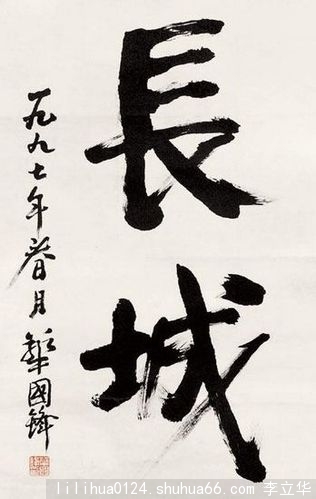 長城
一九九七年春月 華國鋒
lilihua0124.shuhua66.com 李立华